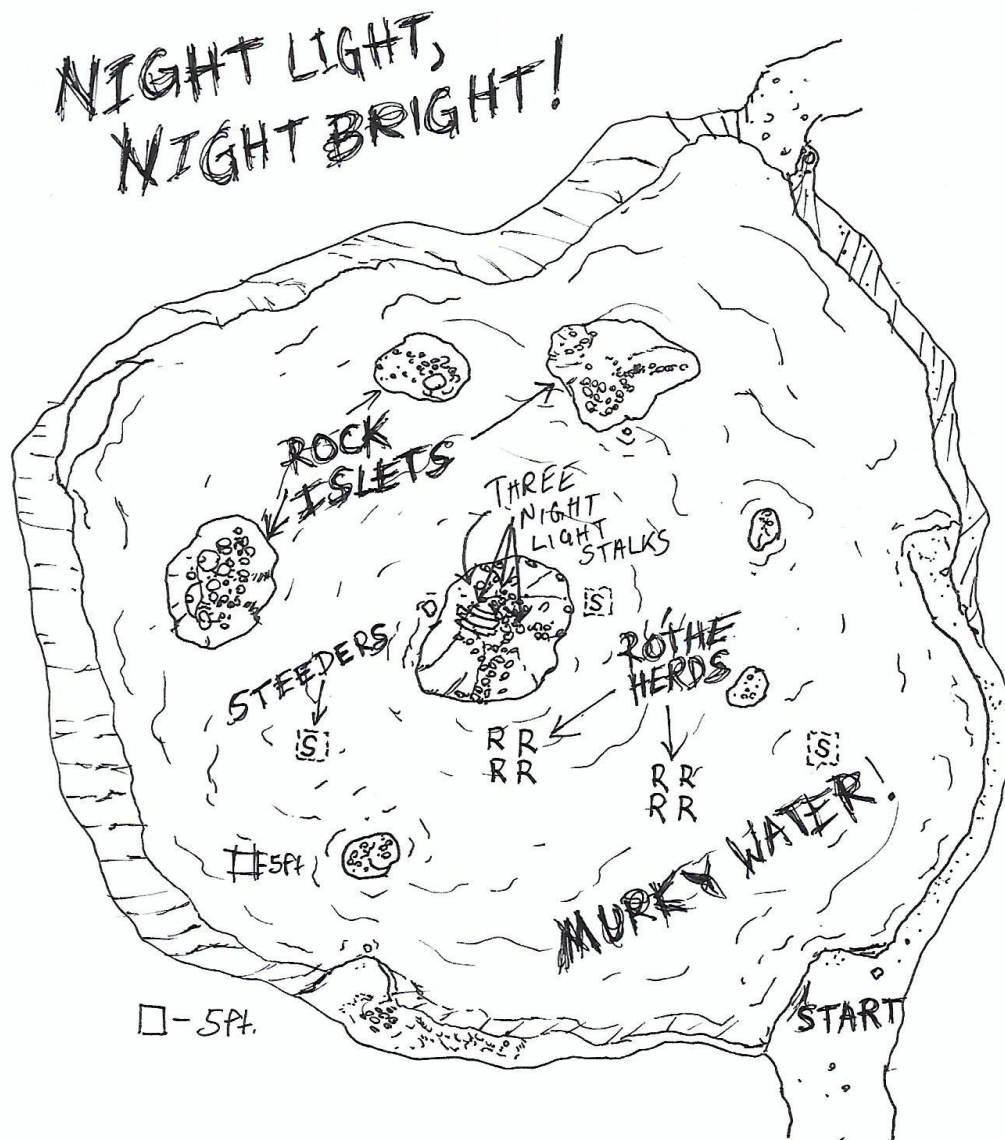 NIGHT LIGHT,
NIGHT BRIGHT!
ROCK
ISLETS
THREE
NIGHT
LIGHT
STALKS
S
STEEDERS
ROTHE
HERDS
S
R R
R R
S
R R
R R
=5ft
MURKY WATER.
□ - 5ft.
START